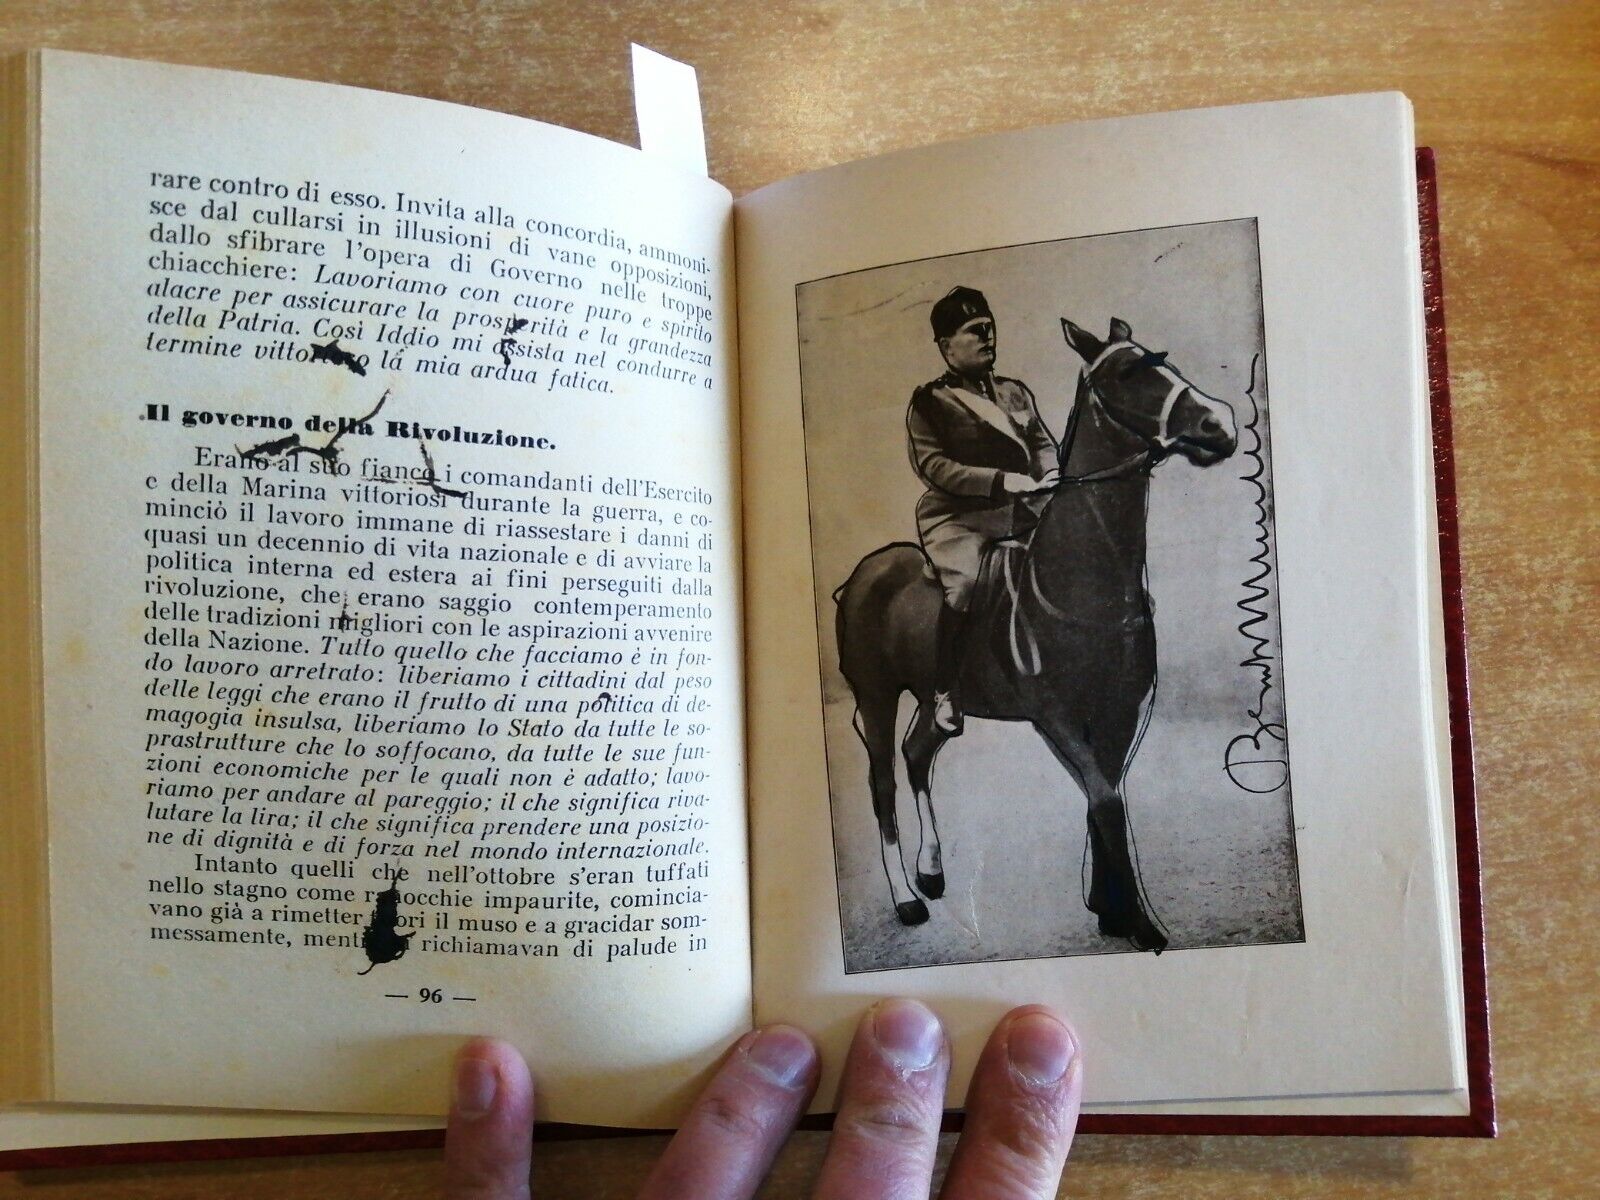 rare contro di esso. Invita alla concordia, ammoni-
sce dal cullarsi in illusioni di vane opposizioni,
dallo sfibrare l'opera di Governo nelle troppe
chiacchiere: Lavoriamo con cuore puro e spirito
alacre per assicurare la prosperità e la grandezza
della Patria. Così Iddio mi assista nel condurre a
termine vittorioso la mia ardua fatica.
Il governo della Rivoluzione.
Erano al suo fianco i comandanti dell'Esercito
e della Marina vittoriosi durante la guerra, e co-
minciò il lavoro immane di riassestare i danni di
quasi un decennio di vita nazionale e di avviare la
politica interna ed estera ai fini perseguiti dalla
rivoluzione, che erano saggio contemperamento
delle tradizioni migliori con le aspirazioni avvenire
della Nazione. Tutto quello che facciamo è in fon-
do lavoro arretrato: liberiamo i cittadini dal peso
delle leggi che erano il frutto di una politica di de-
magogia insulsa, liberiamo lo Stato da tutte le so-
prastrutture che lo soffocano, da tutte le sue fun-
zioni economiche per le quali non è adatto; lavo-
riamo per andare al pareggio; il che significa riva-
lutare la lira; il che significa prendere una posizio-
ne di dignità e di forza nel mondo internazionale.
Intanto quelli che nell'ottobre s'eran tuffati
nello stagno come ranocchie impaurite, comincia-
vano già a rimetter fuori il muso e a gracidar som-
messamente, richiamavan di palude in
— 96 —